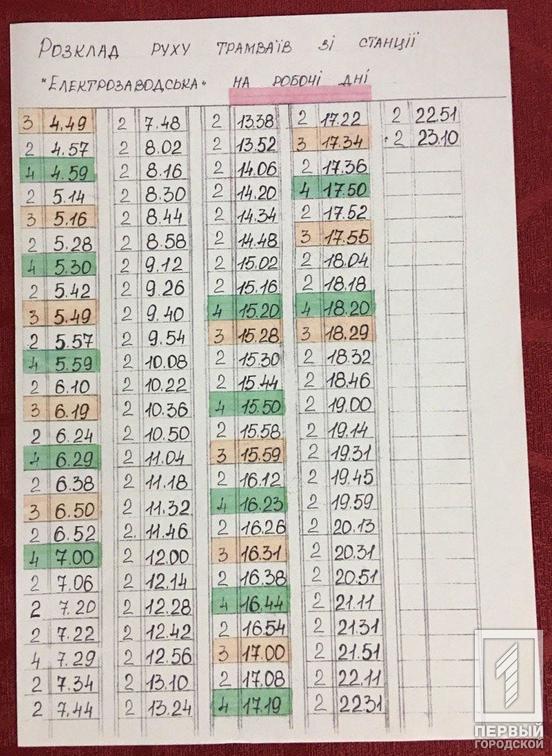 РОЗКЛАД РУХУ ТРАМВАЇВ ЗІ СТАНЦІЇ
"ЕЛЕКТРОЗАВОДСЬКА" НА РОБОЧІ ДНІ
3 4.49
2 4.57
4 4.59
2 5.14
3 5.16
2 5.28
4 5.30
2 5.42
3 5.49
2 5.57
4 5.59
2 6.10
3 6.19
2 6.24
4 6.29
2 6.38
3 6.50
2 6.52
4 7.00
2 7.06
2 7.20
2 7.22
4 7.29
2 7.34
2 7.44
2 7.48
2 8.02
2 8.16
2 8.30
2 8.44
2 8.58
2 9.12
2 9.26
2 9.40
2 9.54
2 10.08
2 10.22
2 10.36
2 10.50
2 11.04
2 11.18
2 11.32
2 11.46
2 12.00
2 12.14
2 12.28
2 12.42
2 12.56
2 13.10
2 13.24
2 13.38
2 13.52
2 14.06
2 14.20
2 14.34
2 14.48
2 15.02
2 15.16
4 15.20
3 15.28
2 15.30
2 15.44
4 15.50
2 15.58
3 15.59
2 16.12
4 16.23
2 16.26
3 16.31
2 16.38
4 16.44
2 16.54
3 17.00
2 17.08
4 17.19
2 17.22
3 17.34
2 17.36
4 17.50
2 17.52
3 17.55
2 18.04
2 18.18
4 18.20
3 18.29
2 18.32
2 18.46
2 19.00
2 19.14
2 19.31
2 19.45
2 19.59
2 20.13
2 20.31
2 20.51
2 21.11
2 21.31
2 21.51
2 22.11
2 22.31
2 22.51
2 23.10
1
ПЕРВЫЙ
ГОРОДСКОЙ